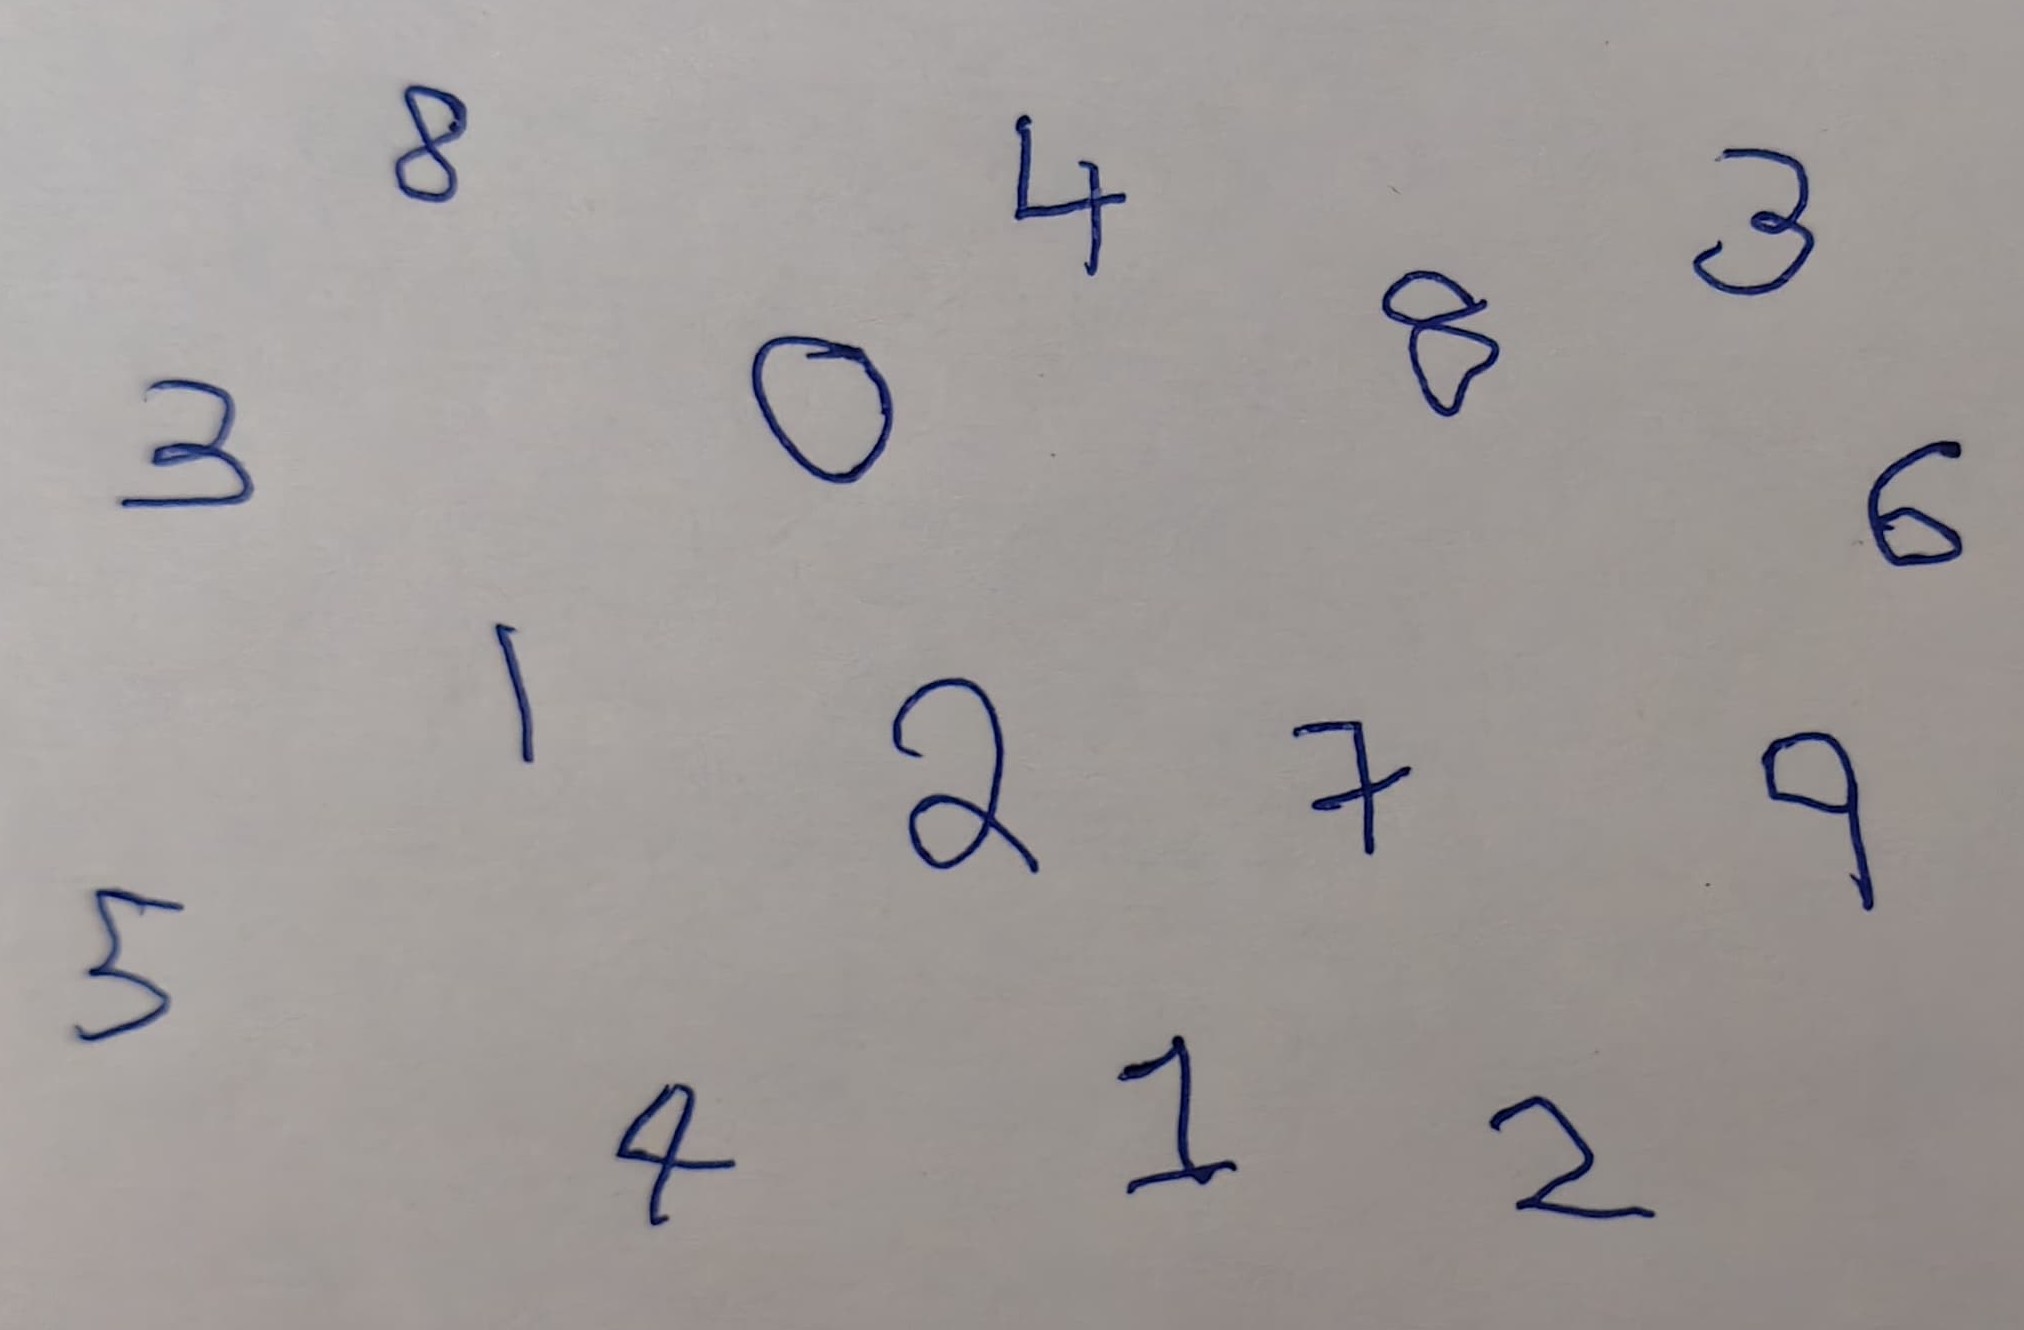 8 4 3
3 0 8 6
1 2 7 9
5 4 1 2